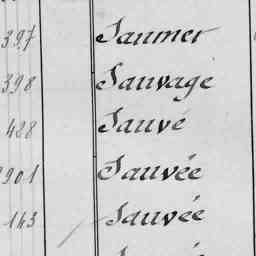 397 Saumer
398 Sauvage
428 Sauvé
901 Sauvée
143 Sauvée